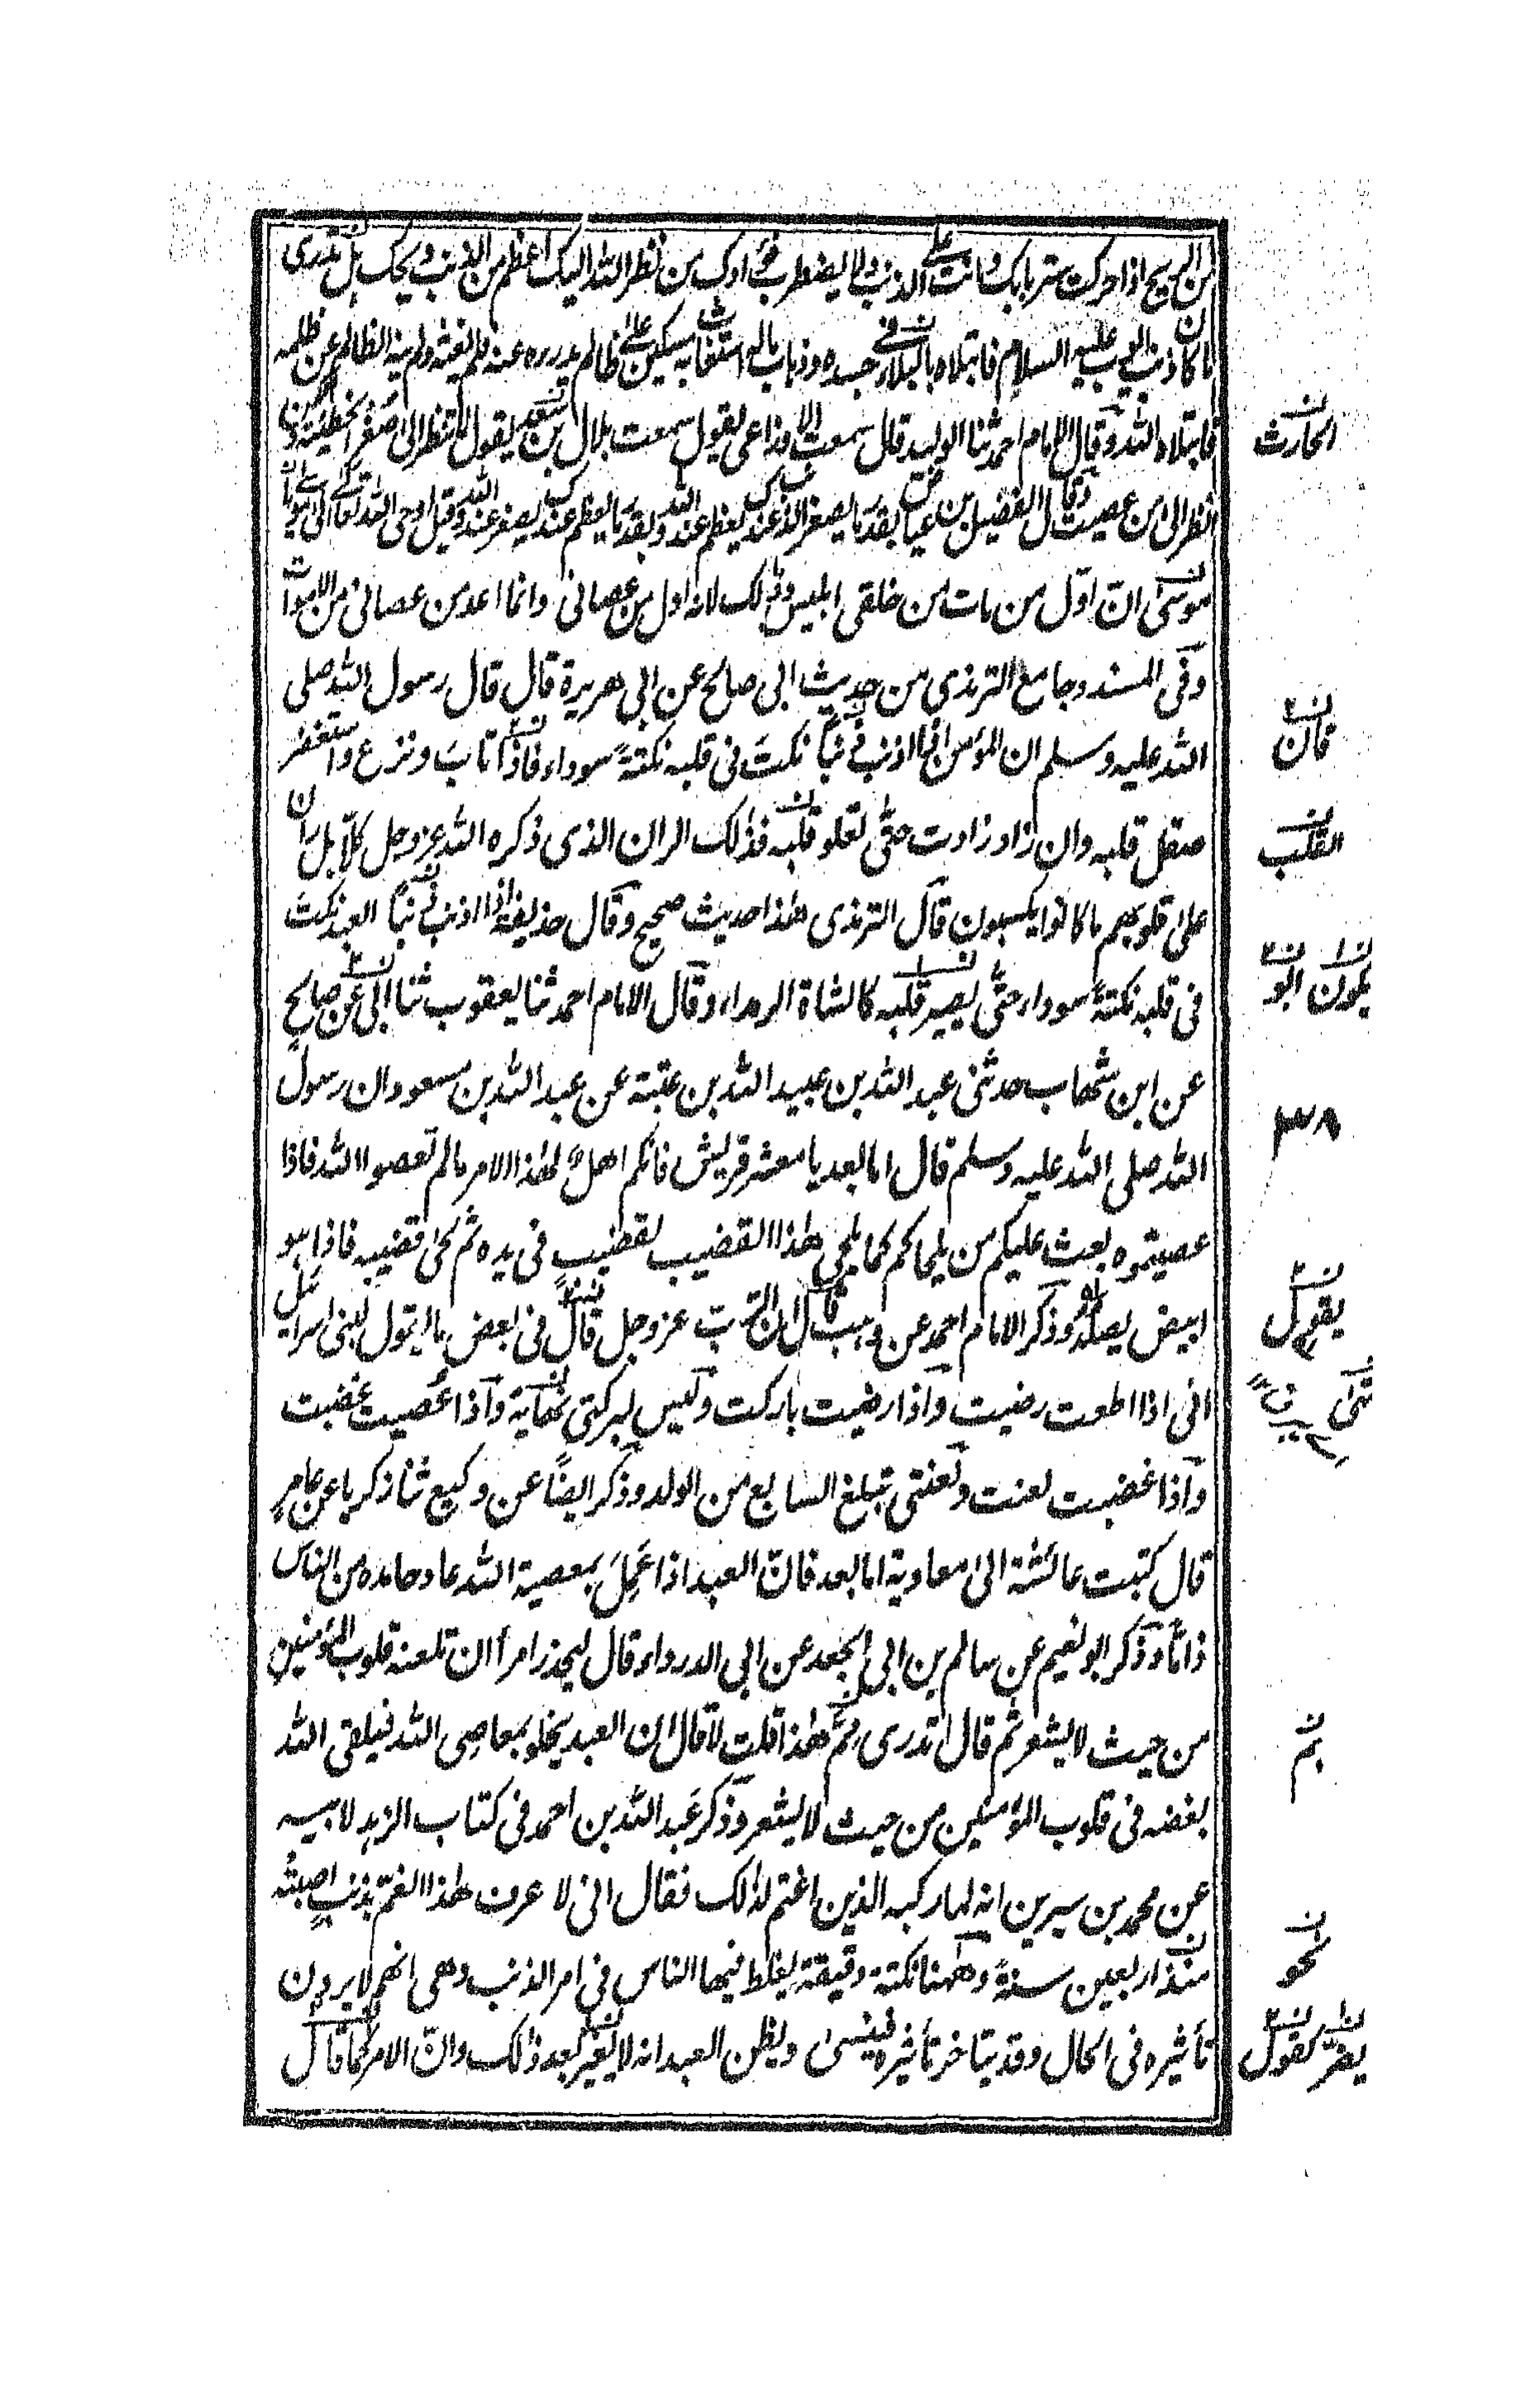 من الريح اذا حركت ستر بابك وانت على الذنب ولا يضطرب فؤادك من نظر الله اليك اعظم من الذنب ويحك هل تدرى
ما كان ذنب ايوب عليه السلام فابتلاه بالبلاء فى جسده وذهاب ماله استغاث به مسكين على ظالم يدرءه عنه فلم يغثه ولم ينه الظالم عن ظلمه
فابتلاه الله وقال الامام احمد ثنا الوليد قال سمعت الاوزاعى يقول سمعت بلال بن سعد يقول لا تنظر الى صغر الخطيئة ولكن
انظر الى من عصيت وقال الفضيل بن عياض بقدر ما يصغر الذنب عندك يعظم عند الله وبقدر ما يعظم عندك يصغر عند الله وقيل اوحى الله تعالى الى موسى يا
موسى ان اوّل من مات من خلقى ابليس وذلك لانه اول من عصانى وانما اعد من عصانى من الاموات
وفى المسند وجامع الترمذى من حديث ابى صالح عن ابى هريرة قال قال رسول الله صلى
الله عليه وسلم ان المؤمن اذا اذنب ذنباً نكتَ فى قلبه نكتةً سوداء فاذا تابَ ونزع واستغفر
صقل قلبه وان زاد زادت حتّى تعلو قلبه فذلك الران الذى ذكره الله عز وجل كلّا بل ران
على قلوبهم ما كانوا يكسبون قال الترمذى هذا حديث صحيح وقال حذيفة اذا اذنب ذنباً العبد نكتَ
فى قلبه نكتةً سوداء حتّى يصير قلبه كالشاة الرمداء وقال الامام احمد ثنا يعقوب ثنا ابى عن صالحٍ
عن ابن شهاب حدثنى عبد الله بن عبيد الله بن عتبة عن عبد الله بن مسعود ان رسول
الله صلى الله عليه وسلم قال اما بعد يا معشر قريش فانكم اهلٌ لهذا الامر ما لم تعصوا الله فاذا
عصيتموه بعث عليكم من يلحاكم كما يلحى هذا القضيب لقضيبٍ فى يده ثم لحى قضيبه فاذا هو
ابيض يصلد وذكر الامام احمد عن وهب قال ان الرّب عز وجل قال فى بعض ما يقول لبنى اسرائيل
انى اذا اطعت رضيت واذا رضيت باركت وليس لبركتى نهاية واذا عُصيت غضبت
واذا غضبت لعنت ولعنتى تبلغ السابع من الولد وذكر ايضاً عن وكيع ثنا زكريا عن عامرٍ
قال كتبت عائشة الى معاوية اما بعد فانّ العبد اذا عَمِلَ بمعصية الله عاد حامده من الناس
ذاماً وذكر ابو نعيم عن سالم بن ابى الجعد عن ابى الدرداء قال ليحذر امرأ ان تلعنه قلوب المؤمنين
من حيث لا يشعر ثم قال اتدرى مِمَّ هذا قلت لا قال ان العبد يخلو بمعاصِى الله فيلقى الله
بغضه فى قلوب المؤمنين من حيث لا يشعر وذكر عبد الله بن احمد فى كتاب الزهد لابيه
عن محمد بن سيرين انه لما ركبه الدين اغتم لذلك فقال انى لا عرف هذا الغمّ بذنبٍ اصبته
منذ اربعين سنةً وههنا نكتة دقيقة يغلط فيها الناس فى امر الذنب وهى انهم لا يرون
تأثيره فى الحال وقد يتاخر تأثيره فينسىٰ ويظن العبد انه لا يغير بعد ذلك وانّ الامر كما قال
الحارث
فان
القلب
ابو
٣٨
يقول
بم
نحو
يضرّ كقول